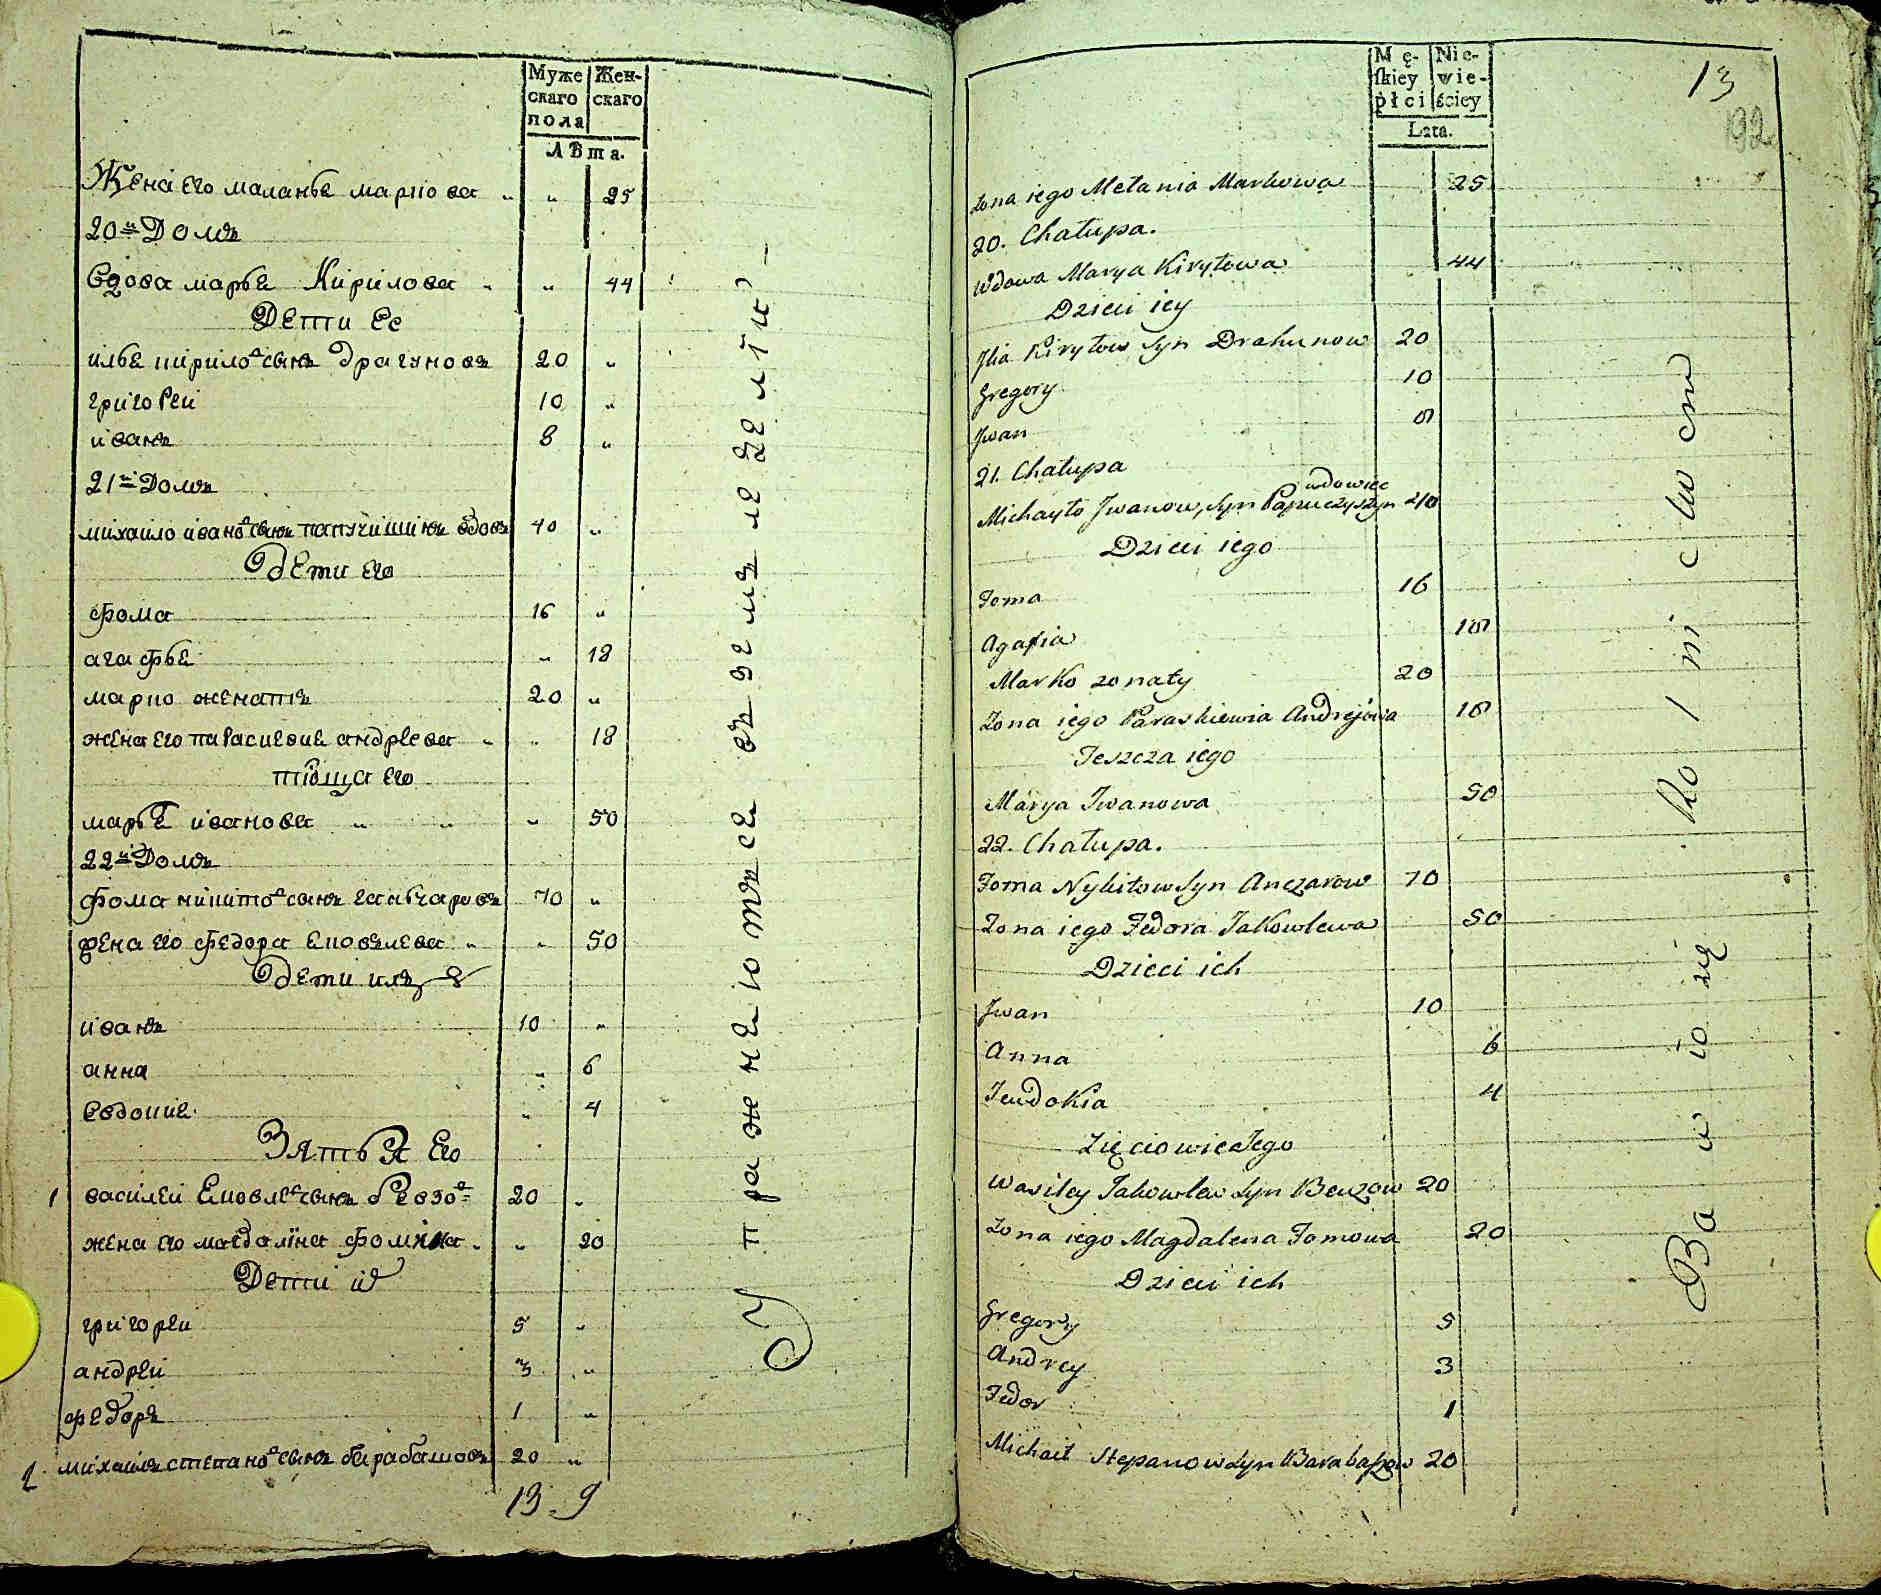 Муже
скаго
пола
Жен-
скаго
Лѣта.
Жена его маланье маркова „ „ 25
20й Домъ
Вдова марье Кирилова „ „ 44
Дети Ее
илье кирило сынъ драгуновъ 20 „
григореи 10 „
иванъ 8 „
21й Домъ
михаило ивано сынъ папучишинъ вдовъ 40 „
дети его
фома 16 „
агафье „ 18
марко женатъ 20 „
жена его параскевие андреева „ „ 18
тіоща его
марье иванова „ „ „ 50
22й Домъ
фома никито сынъ ганчаровъ 70 „
жена его федора Ековлева „ „ 50
дети ихъ
иванъ 10 „
анна „ 6
Евдокие „ 4
Зятья Его
1 василеи Ековле сынъ 20 „
жена его магдалїна фомина „ „ 20
Дети их
григореи 5 „
андреи 3 „
федоръ 1 „
2 михаилъ степано сынъ барабашовъ 20 „
13 9
Упражнеютъсе въ земледелїи
Mę-
ſkiey
płci
Nie-
wie-
ściey
Lata.
13
92
Zona iego Melania Markowa 25
20. Chałupa.
Wdowa Marya Kiryłowa 44
Dzieci iey
Jlia Kiryłow Syn Drahunow 20
Gregory 10
Jwan 8
21. Chałupa
wdowiec
Michayło Jwanow, Syn Papuczyszyn 40
Dzieci iego
Foma 16
Agafia 18
Marko zonaty 20
Zona iego Paraskiewia Andrejowa 18
Teszcza iego
Marya Jwanowa 50
22. Chałupa.
Foma Nykitow Syn Anczarow 70
Zona iego Fedora Jakowlewa 50
Dzieci ich
Jwan 10
Anna 6
Jeudokia 4
Zięciowie Jego
Wasiley Jakowlew Syn Bewzow 20
Zona iego Magdalena Fomowa 20
Dzieci ich
Gregory 5
Andrey 3
Fedor 1
Michaił Stepanow Syn Barabaszow 20
Bawio się Rolnictwem